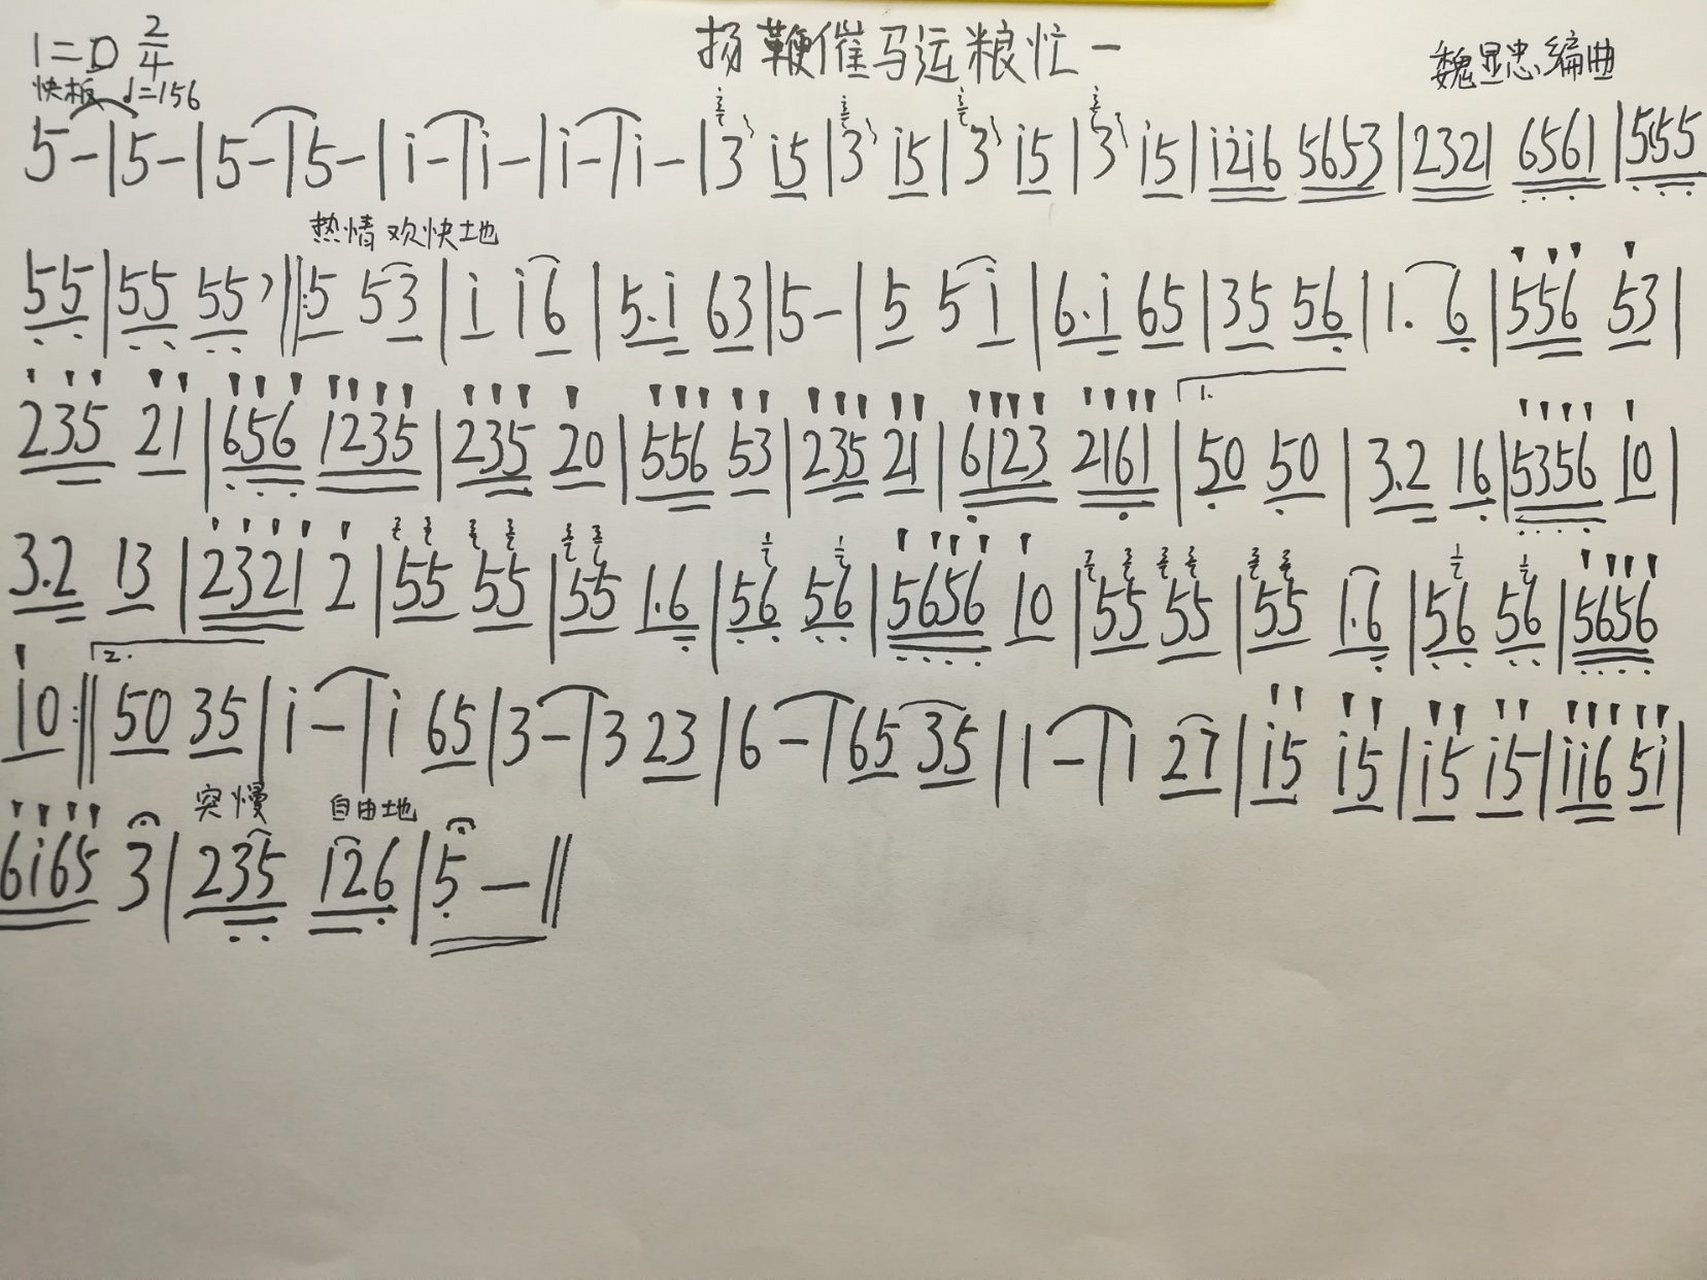 1=D 2/4 扬鞭催马运粮忙一 魏显忠编曲
快板 ♩=156
5-|5-|5-|5-|i-|i-|i-|i-|3 i5|3 i5|3 i5|3 i5|i2i6 5653|2321 6561|555
热情欢快地
55|55 55,‖:5 53|i i6|5.i 63|5-|5 5i|6.i 65|35 56|1. 6|556 53|
1.
235 21|656 1235|235 20|556 53|235 21|6123 2161|50 50|3.2 16|5356 10|
3.2 13|2321 2|55 55|55 1.6|56 56|5656 10|55 55|55 1.6|56 56|5656
2.
10:‖50 35|i-|i 65|3-|3 23|6-|65 35|1-|1 27|i5 i5|i5 i5|ii6 5i|
突慢 自由地
6i65 3|235 126|5-‖